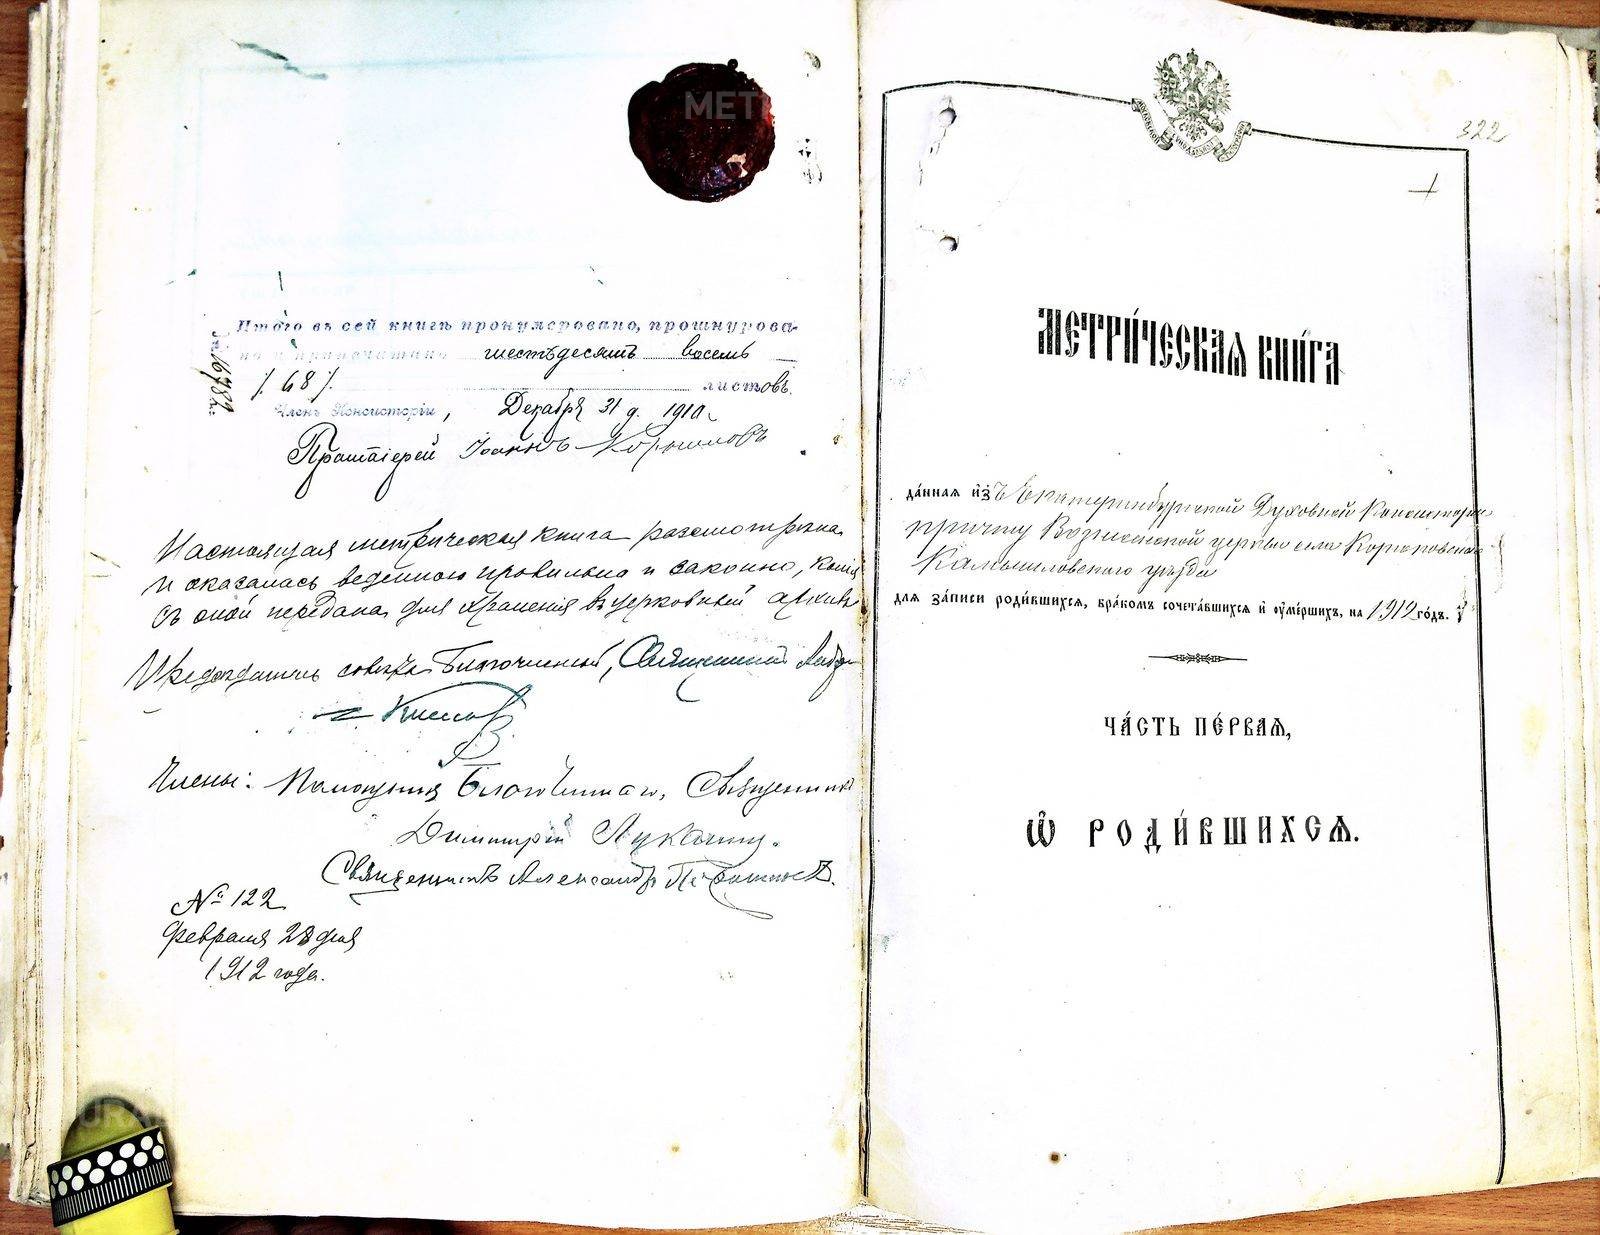 Итого въ сей книгѣ пронумеровано, прошнурова-
но и припечатано шестьдесятъ восемь
/68/ листовъ.
Членъ Консисторіи, Декабря 31 д. 1910 г.
Протоіерей Іоаннъ
№ 16782
Настоящая метрическая книга разсмотрена
и оказалась веденною правильно и законно, копія
съ оной передана для храненія въ церковный архивъ
Предсѣдатель совѣта Благочинный, Священникъ
Члены: Помощникъ Благочиннаго, Священникъ
Димитрій Лукинъ.
Священникъ Александръ
№ 122
Февраля 28 дня
1912 года.
322
МЕТРИ́ЧЕСКАѦ КНИ́ГА
да́ннаѧ и҆зъ Екатеринбургской Духовной Консисторіи
причту Вознесенской церкви села
Камышловскаго уѣзда
для за́писи роди́вшихсѧ, бра́комъ сочета́вшихсѧ и҆ ᲂу҆ме́ршихъ, на 1912 го́дъ.
ЧА́СТЬ ПЕ́РВАѦ,
Ѽ РОДИ́ВШИХСѦ.